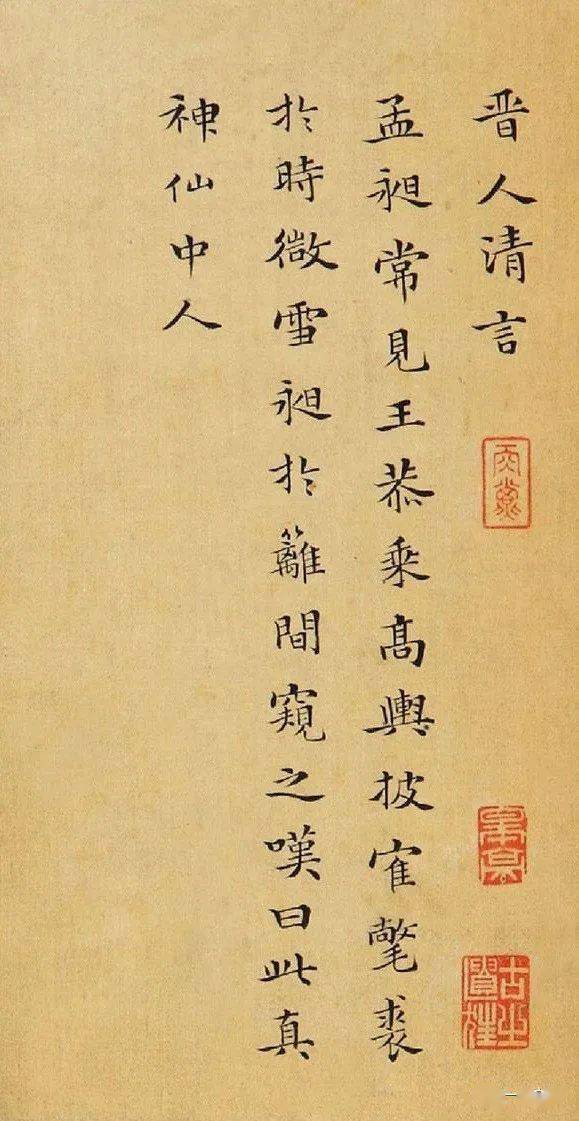 晉人清言
孟昶常見王恭乘髙輿披隺氅裘
於時微雪昶於籬間窺之嘆曰此真
神仙中人